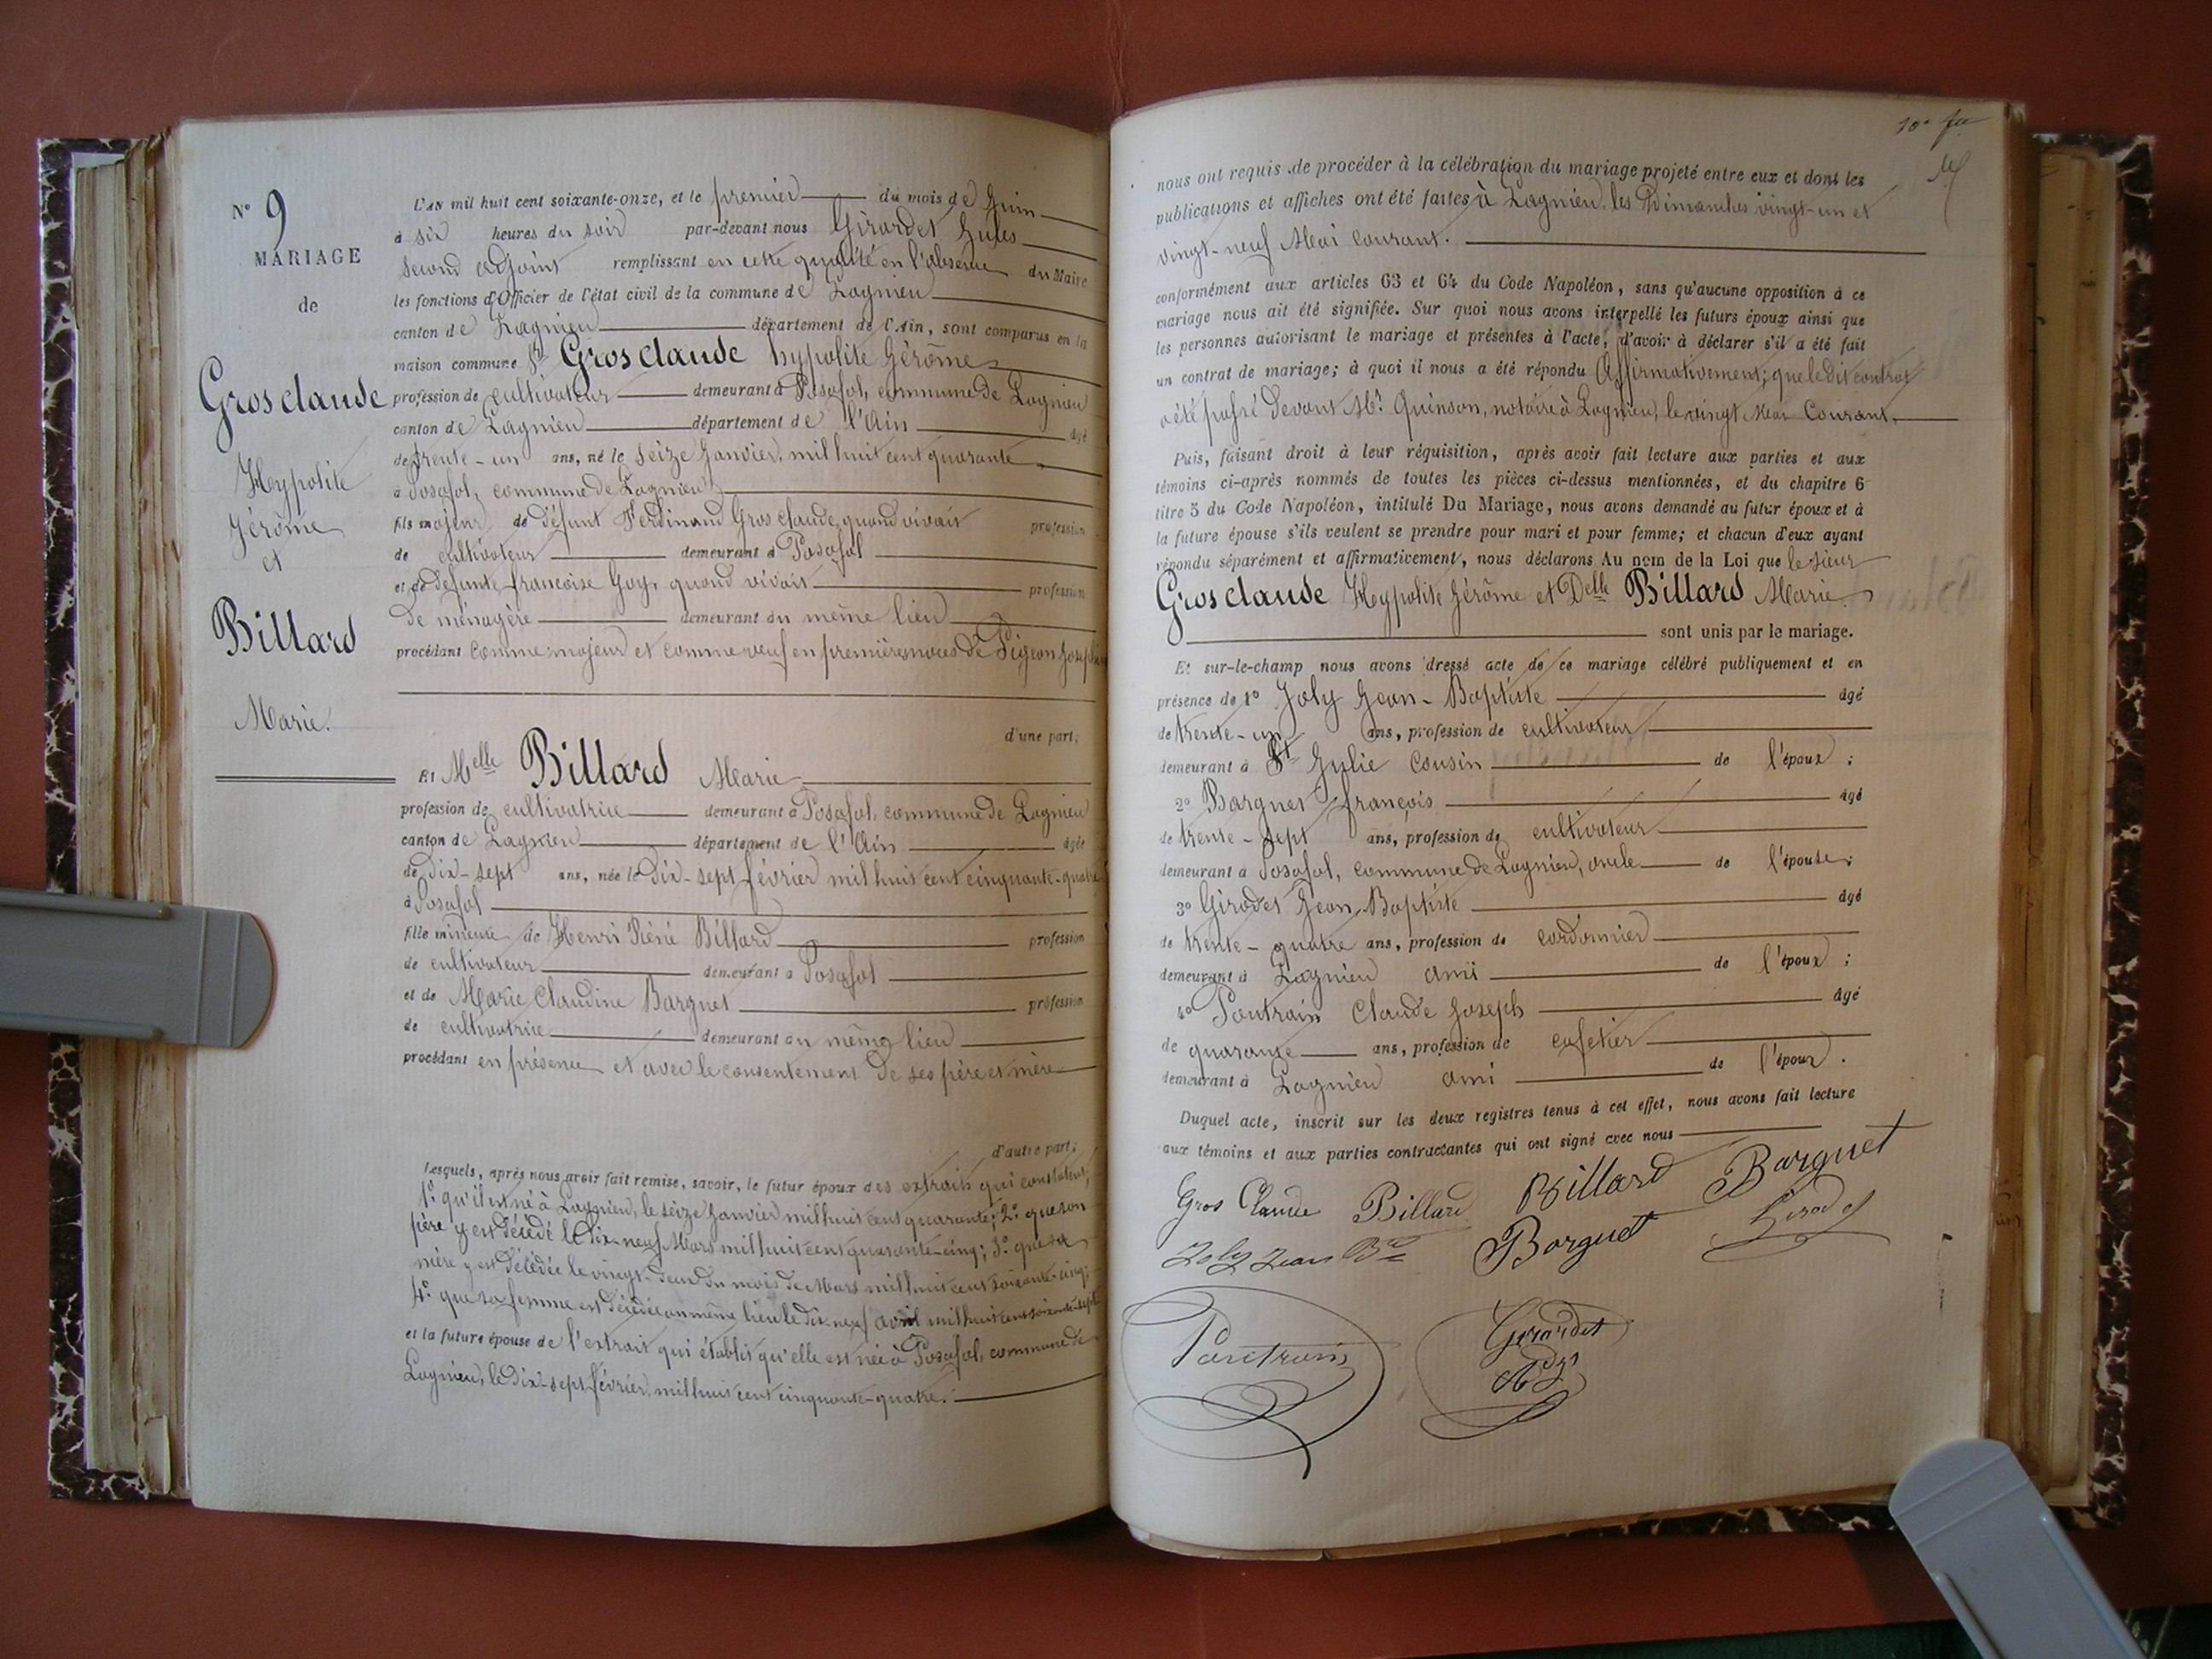 N° 9
MARIAGE
de
Gros claude
Hypolite
Jérôme
et
Billard
Marie.
L'AN mil huit cent soixante-onze, et le premier du mois de Juin
à six heures du soir par-devant nous Girardet Jules
second adjoint remplissant en cette qualité en l'absence du Maire
les fonctions d'Officier de l'état civil de la commune de Lagnieu
canton de Lagnieu département de l'Ain, sont comparus en la
maison commune Sr Gros claude hypolite Jérôme
profession de cultivateur demeurant à Posafol, commune de Lagnieu
canton de Lagnieu département de l'Ain âgé
de trente-un ans, né le seize Janvier, mil huit cent quarante
à Posafol, commune de Lagnieu
fils majeur de défunt Ferdinand Gros claude, quand vivait profession
de cultivateur demeurant à Posafol
et de défunte françoise Guy, quand vivait profession
de ménagère demeurant au même lieu
procédant comme majeur et comme veuf en premières noces de Pigeon
d'une part;
Et Melle Billard Marie
profession de cultivatrice demeurant à Posafol, commune de Lagnieu
canton de Lagnieu département de l'Ain âgée
de Dix-sept ans, née le Dix-sept février mil huit cent cinquante-quatre
à Posafol
fille mineure de Henri Réné Billard profession
de cultivateur demeurant à Posafol
et de Marie Claudine Barguet profession
de cultivatrice demeurant au même lieu
procédant en présence et avec le consentement de ses père et mère
d'autre part;
Lesquels, après nous avoir fait remise, savoir, le futur époux des extraits qui constatent;
1° qu'il est né à Lagnieu, le seize Janvier mil huit cent quarante; 2° que son
père y est décédé le Dix-neuf Mars mil huit cent quarante-cinq; 3° que sa
mère y est décédée le vingt-deux du mois de Mars mil huit cent soixante-cinq;
4° que sa femme est décédée au même lieu le dix-neuf avril mil huit cent soixante-sept
et la future épouse de l'extrait qui établit qu'elle est née à Posafol, commune de
Lagnieu, le Dix-sept février, mil huit cent cinquante-quatre.
nous ont requis de procéder à la célébration du mariage projeté entre eux et dont les
publications et affiches ont été faites à Lagnieu, les Dimanches vingt-un et
vingt-neuf Mai courant.
conformément aux articles 63 et 64 du Code Napoléon, sans qu'aucune opposition à ce
mariage nous ait été signifiée. Sur quoi nous avons interpellé les futurs époux ainsi que
les personnes autorisant le mariage et présentes à l'acte, d'avoir à déclarer s'il a été fait
un contrat de mariage; à quoi il nous a été répondu Affirmativement; que le dit contrat
a été passé devant Mr. Quinson, notaire à Lagnieu, le vingt Mai Courant.
Puis, faisant droit à leur réquisition, après avoir fait lecture aux parties et aux
témoins ci-après nommés de toutes les pièces ci-dessus mentionnées, et du chapitre 6
titre 5 du Code Napoléon, intitulé Du Mariage, nous avons demandé au futur époux et à
la future épouse s'ils veulent se prendre pour mari et pour femme; et chacun d'eux ayant
répondu séparément et affirmativement, nous déclarons Au nom de la Loi que le sieur
Gros claude Hypolite Jérôme et Delle Billard Marie
sont unis par le mariage.
Et sur-le-champ nous avons dressé acte de ce mariage célébré publiquement et en
présence de 1° Joly Jean-Baptiste âgé
de trente-un ans, profession de cultivateur
demeurant à St Julie Cousin de l'époux;
2° Barguet françois âgé
de trente-sept ans, profession de cultivateur
demeurant à Posafol, commune de Lagnieu, oncle de l'épouse;
3° Girodet Jean-Baptiste âgé
de trente-quatre ans, profession de cordonnier
demeurant à Lagnieu ami de l'époux;
4° Pontrain Claude Joseph âgé
de quarante ans, profession de cafetier
demeurant à Lagnieu ami de l'époux.
Duquel acte, inscrit sur les deux registres tenus à cet effet, nous avons fait lecture
aux témoins et aux parties contractantes qui ont signé avec nous
Gros Claude Billard Billard Barguet
Joly Jean Bte Barguet Girodet
Pontrain Girardet
Adj